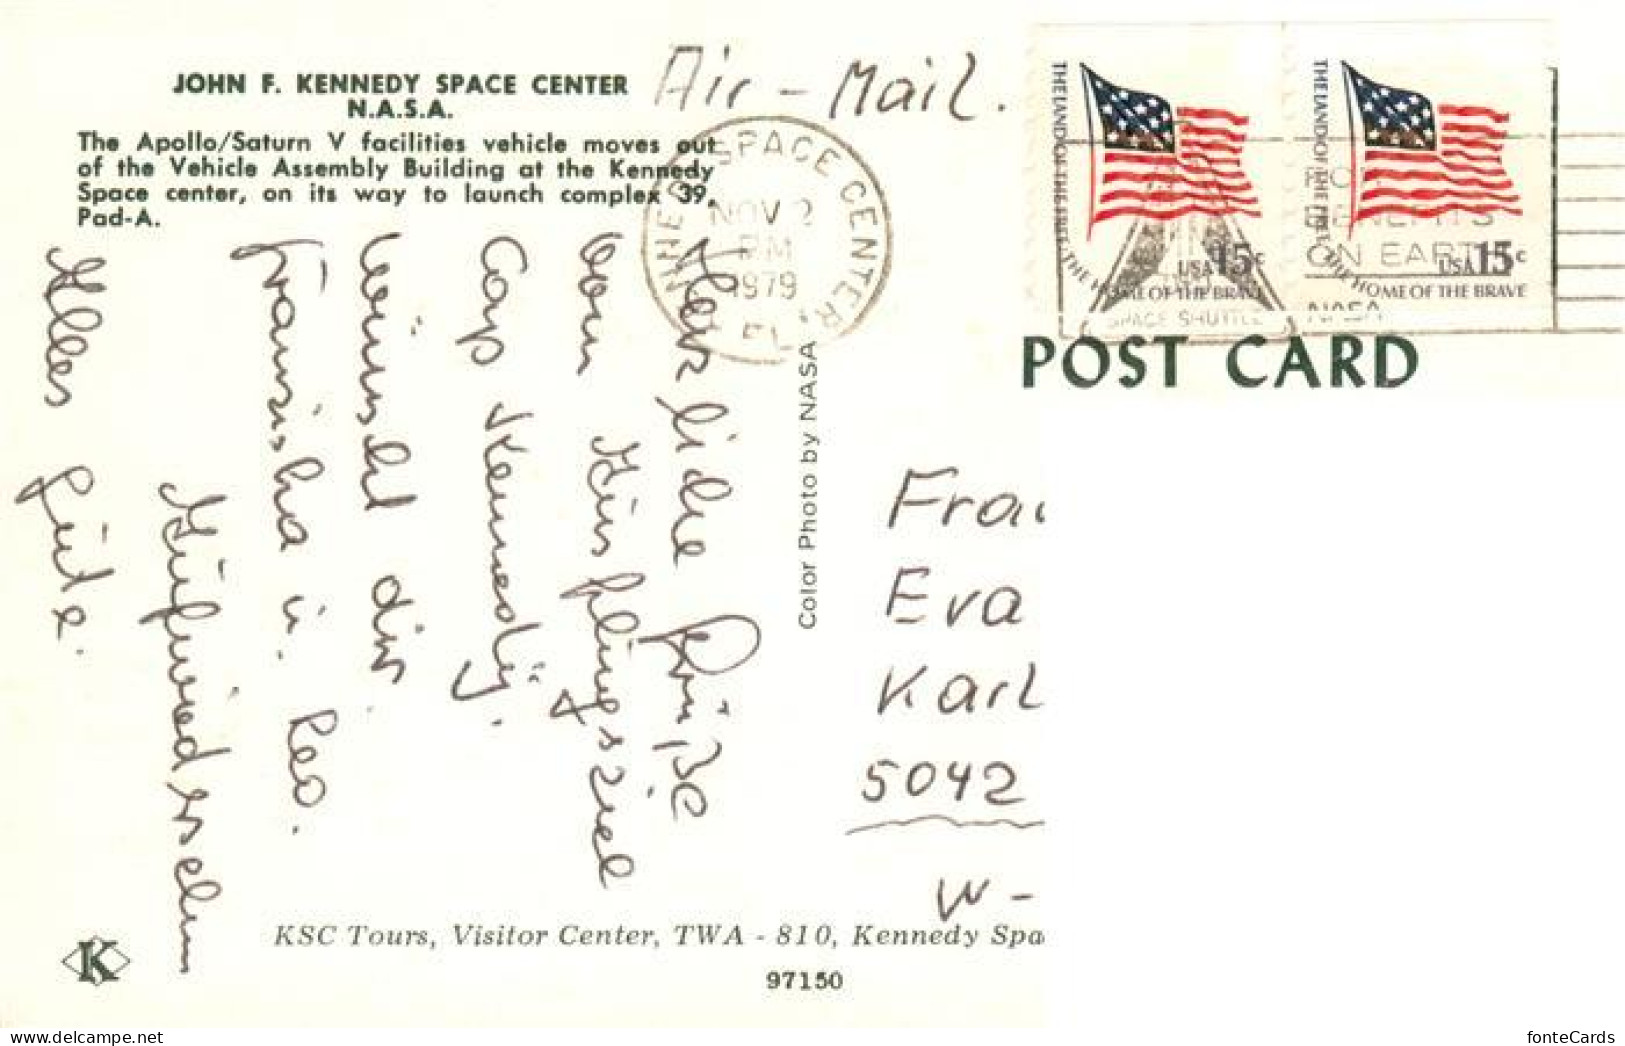 JOHN F. KENNEDY SPACE CENTER
N.A.S.A.
The Apollo/Saturn V facilities vehicle moves out
of the Vehicle Assembly Building at the Kennedy
Space center, on its way to launch complex 39,
Pad-A.
Air - Mail.
SPACE CENTER, FL
NOV 2
PM
1979
THE LAND OF THE FREE, THE HOME OF THE BRAVE
USA 15c
THE LAND OF THE FREE, THE HOME OF THE BRAVE
USA 15c
BENEFITS
ON EARTH
NASA
SPACE SHUTTLE
POST CARD
Herzliche Grüße
vom
Cap Kennedy.
wünscht dir
Franziska u. Leo.
Alles Gute.
Color Photo by NASA
Frau
Eva
Karl
5042
W -
KSC Tours, Visitor Center, TWA - 810, Kennedy Spa
97150
K
https://www.delcampe.net
fonteCards